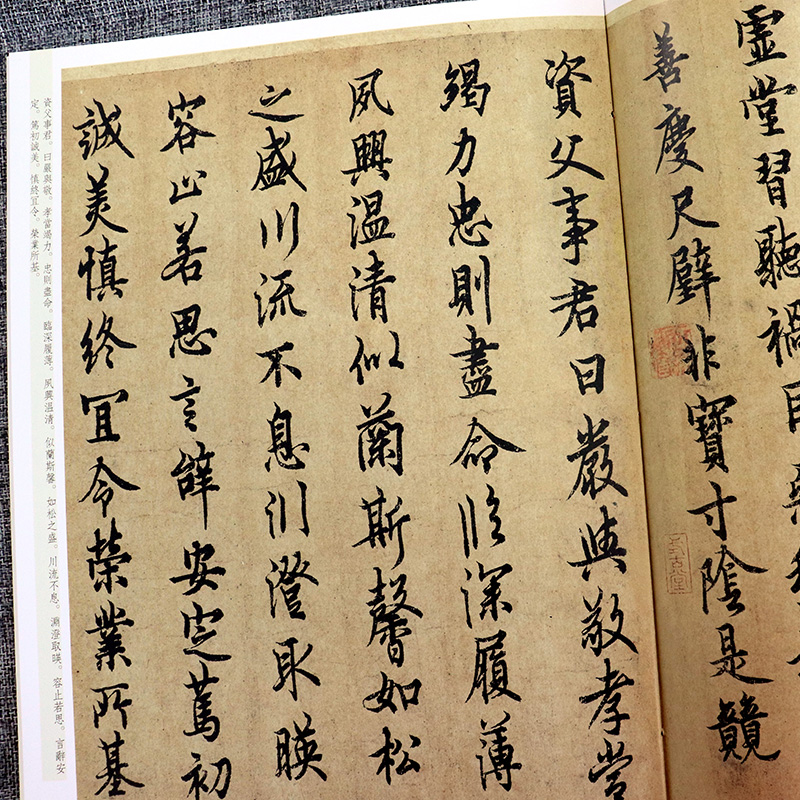 虚堂習聽禍因惡
善慶尺璧非寶寸陰是競
資父事君曰嚴與敬孝當
竭力忠則盡命臨深履薄
夙興温清似蘭斯馨如松
之盛川流不息渊澄取暎
容止若思言辭安定篤初
誠美慎終宜令榮業所基
資父事君。曰嚴與敬。孝當竭力。忠則盡命。臨深履薄。夙興溫清。似蘭斯馨。如松之盛。川流不息。淵澄取暎。容止若思。言辭安
定。篤初誠美。慎終宜令。榮業所基。